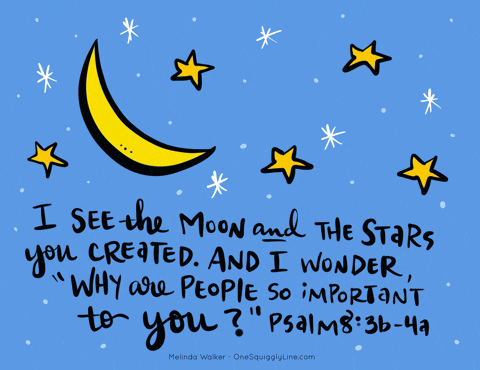 I SEE the MOON and THE STARS
you CREATED. AND I WONDER,
"WHY are PEOPLE SO iMPORTANT
to you?" Psalm 8:3b-4a
Melinda Walker · OneSquigglyLine.com